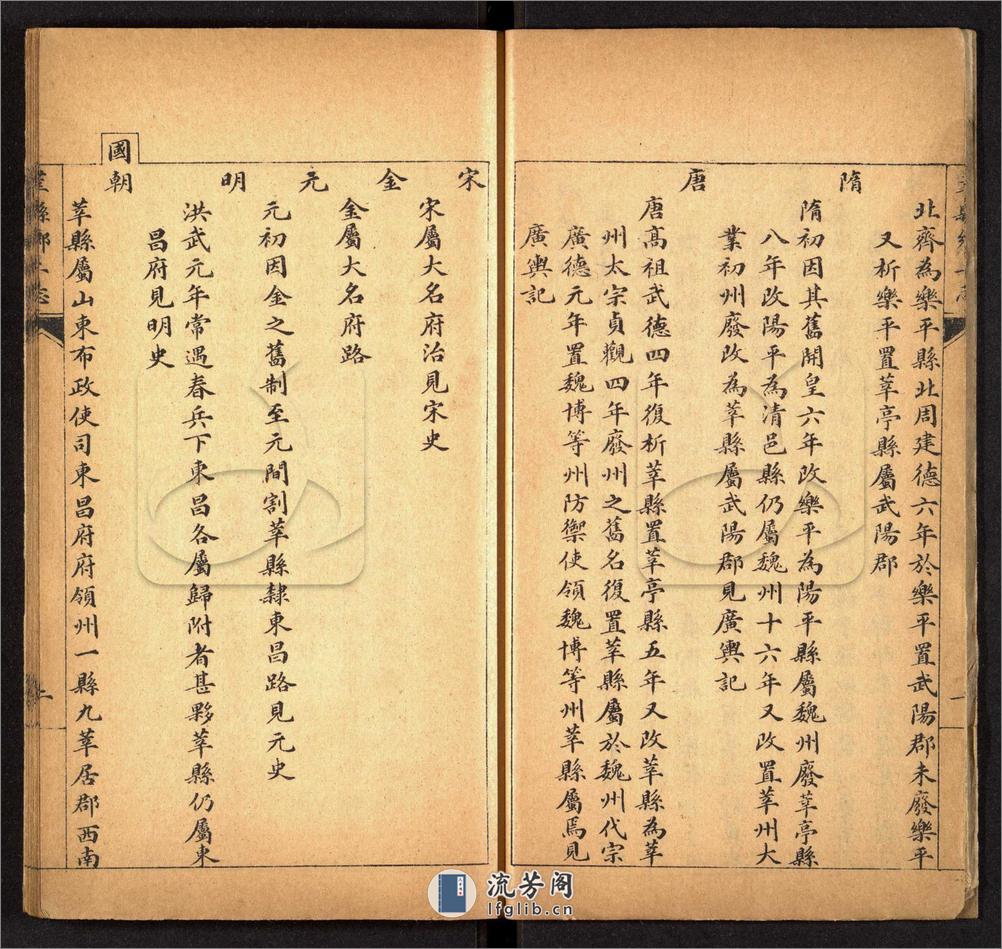 北齊為樂平縣北周建德六年於樂平置武陽郡未廢樂平
又析樂平置莘亭縣屬武陽郡
隋
隋初因其舊開皇六年改樂平為陽平縣屬魏州廢莘亭縣
八年改陽平為清邑縣仍屬魏州十六年又改置莘州大
業初州廢改為莘縣屬武陽郡見廣輿記
唐
唐高祖武德四年復析莘縣置莘亭縣五年又改莘縣為莘
州太宗貞觀四年廢州之舊名復置莘縣屬於魏州代宗
廣德元年置魏博等州防禦使領魏博等州莘縣屬焉見
廣輿記
宋
宋屬大名府治見宋史
金
金屬大名府路
元
元初因金之舊制至元間割莘縣隸東昌路見元史
明
洪武元年常遇春兵下東昌各屬歸附者甚夥莘縣仍屬東
昌府見明史
國朝
莘縣屬山東布政使司東昌府府領州一縣九莘居郡西南
流芳阁
lfglib.cn